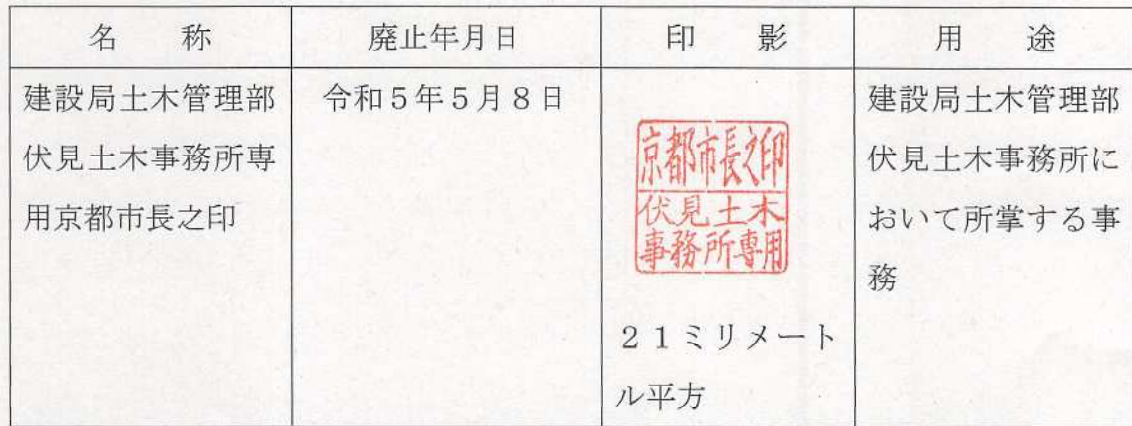 名　　称
廃止年月日
印　　影
用　　途
建設局土木管理部
伏見土木事務所専
用京都市長之印
令和５年５月８日
京都市長之印
伏見土木
事務所専用
２１ミリメート
ル平方
建設局土木管理部
伏見土木事務所に
おいて所掌する事
務